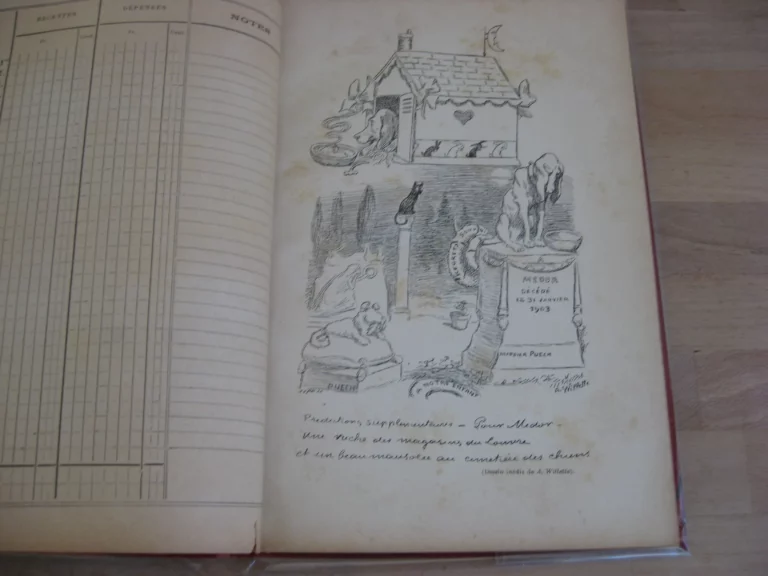 RECETTES
DÉPENSES
NOTES
REGRETS
MEDOR
DÉCÉDÉ
LE 31 JANVIER
1903
PUECH
PUECH
A NOTRE ENFANT
A. Willette
Prédictions supplémentaires — Pour Medor —
Une niche des magasins du Louvre
et un beau mausolée au cimetière des chiens
(Dessin inédit de A. Willette)